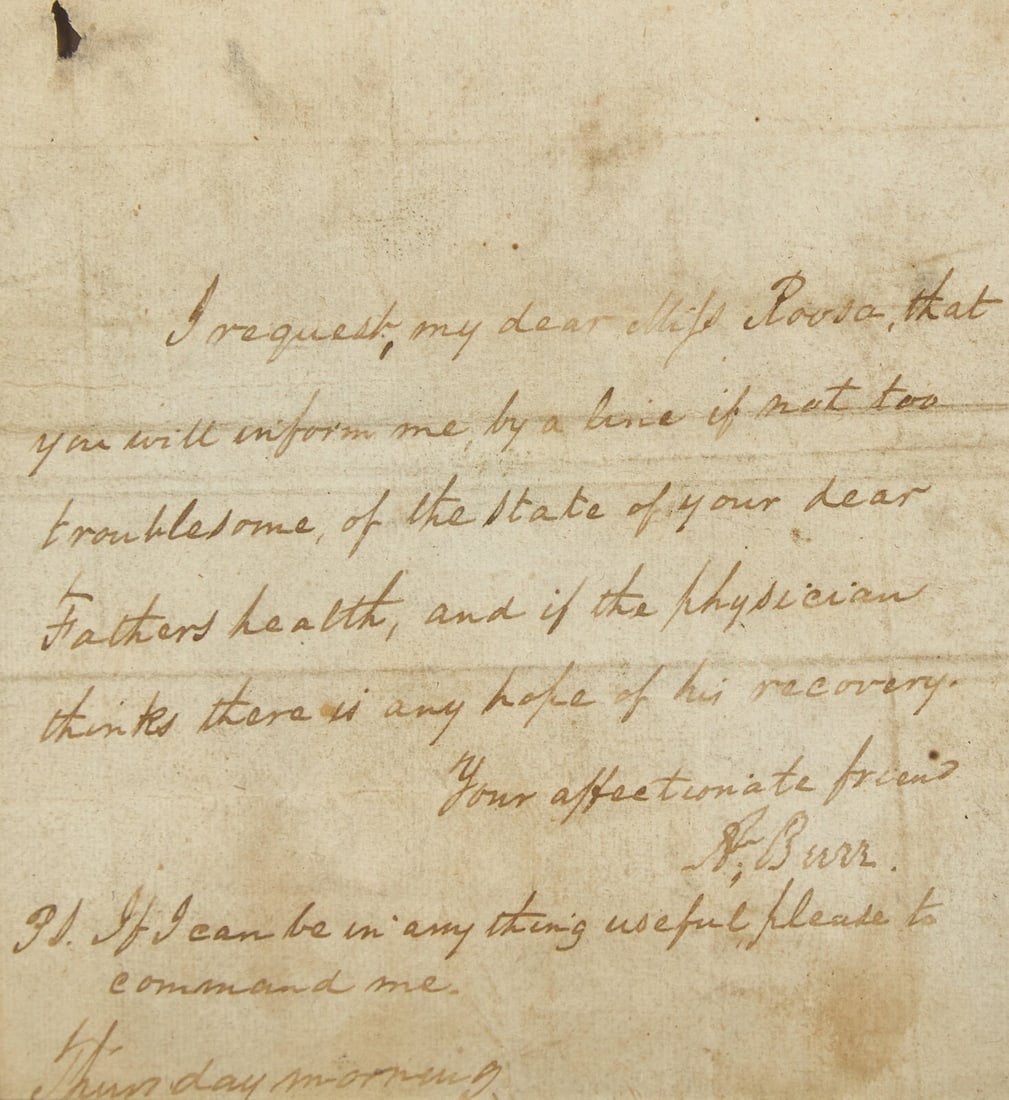 I request, my dear Miſs Roosa, that
you will inform me, by a line if not too
troublesome, of the state of your dear
Fathers health, and if the physician
thinks there is any hope of his recovery.
Your affectionate friend
Ar, Burr.
PS. If I can be in any thing useful, please to
command me.
Thursday morning